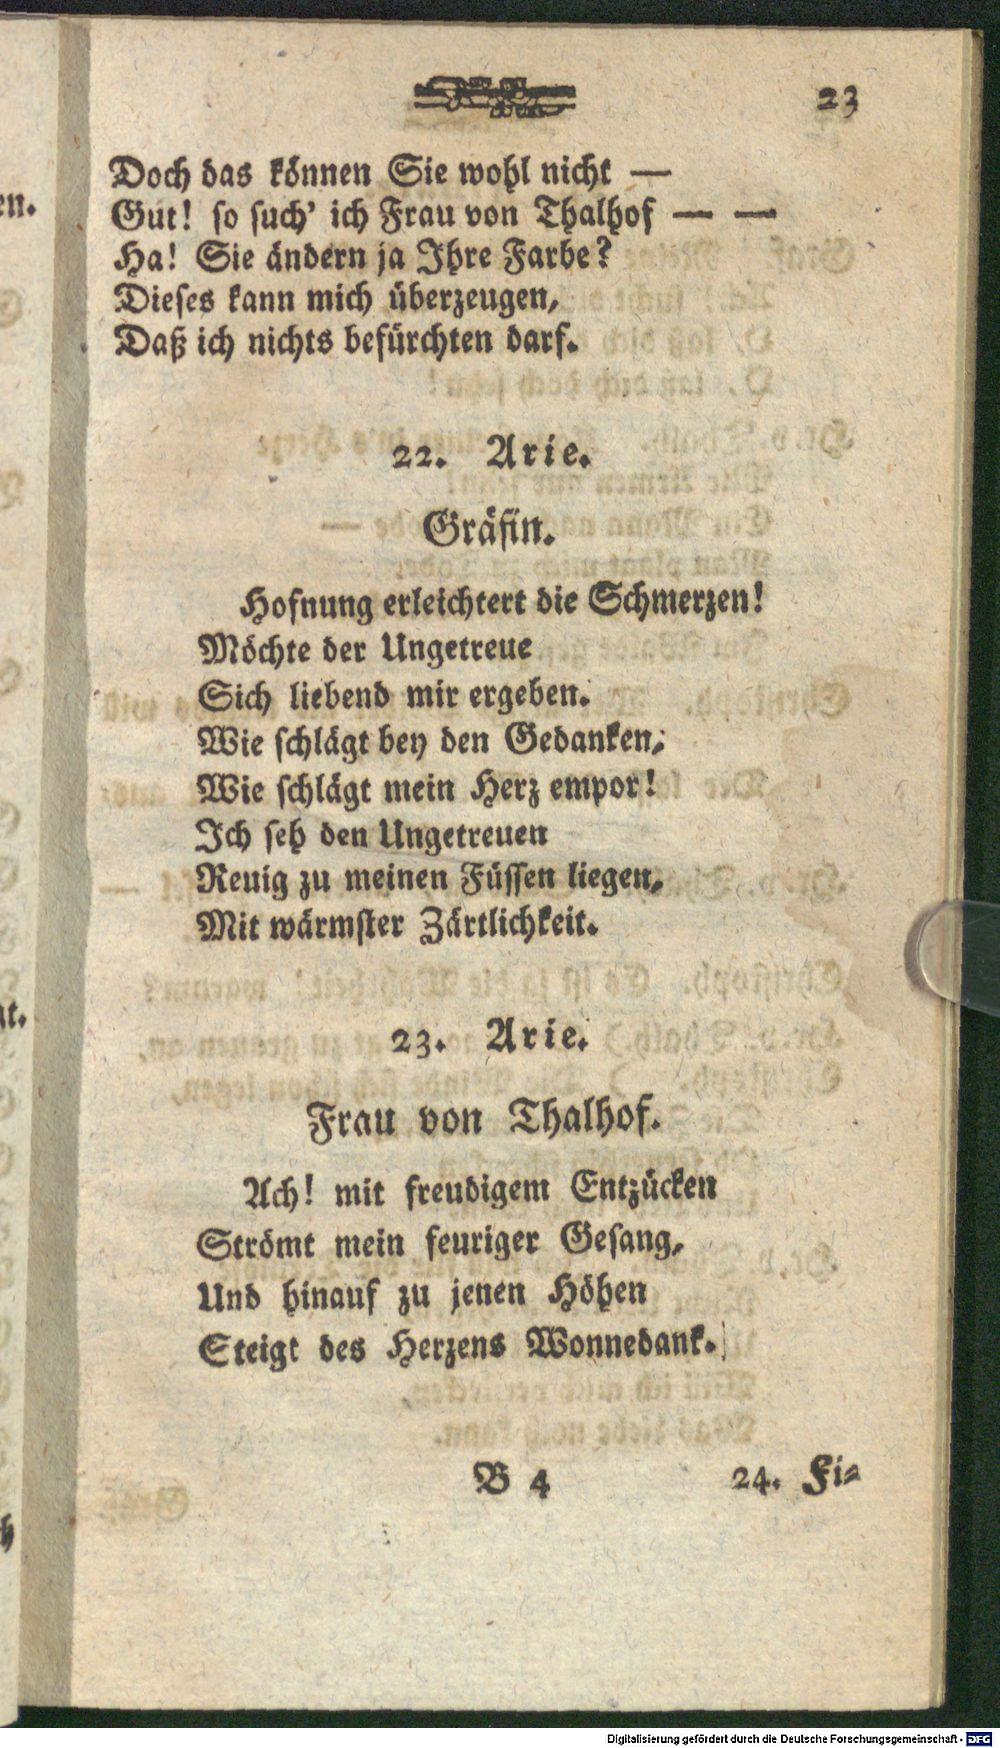 23
Doch das können Sie wohl nicht —
Gut! so such' ich Frau von Thalhof — —
Ha! Sie ändern ja Ihre Farbe?
Dieses kann mich überzeugen,
Daß ich nichts befürchten darf.
22. Arie.
Gräfin.
Hofnung erleichtert die Schmerzen!
Möchte der Ungetreue
Sich liebend mir ergeben.
Wie schlägt bey den Gedanken,
Wie schlägt mein Herz empor!
Ich seh den Ungetreuen
Reuig zu meinen Füssen liegen,
Mit wärmster Zärtlichkeit.
23. Arie.
Frau von Thalhof.
Ach! mit freudigem Entzücken
Strömt mein feuriger Gesang,
Und hinauf zu jenen Höhen
Steigt des Herzens Wonnedank.
B 4 24. Fi-
Digitalisierung gefördert durch die Deutsche Forschungsgemeinschaft - DFG